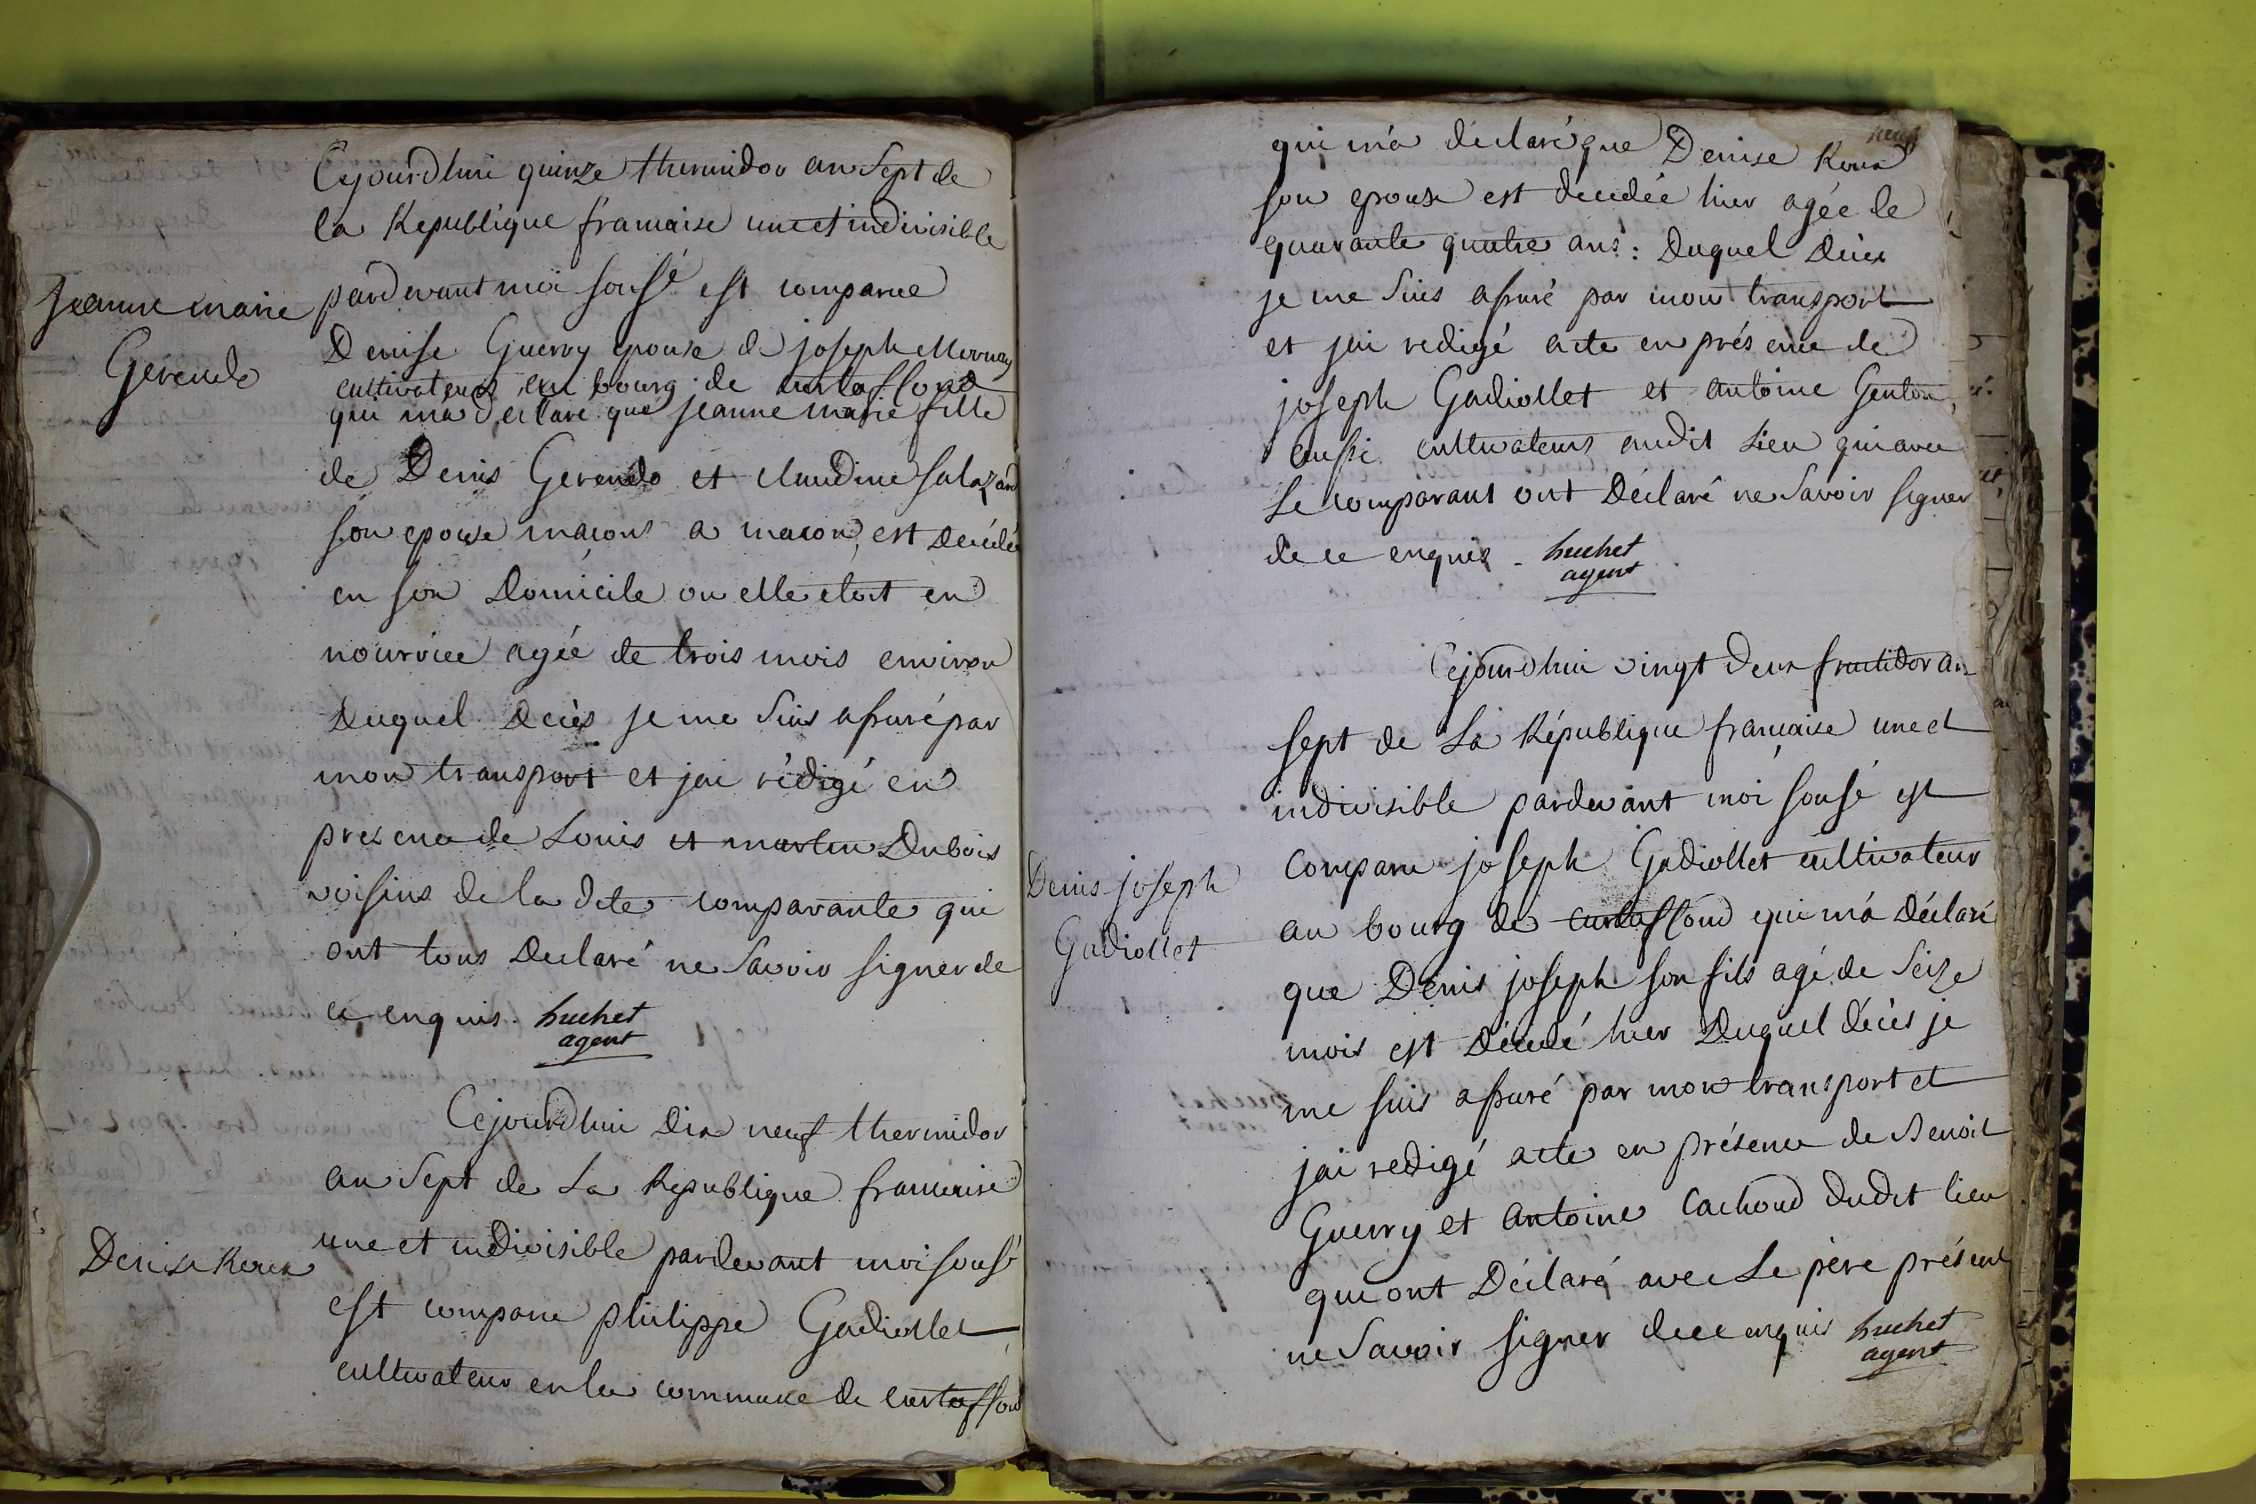 Cejourdhui quinze thermidor an Sept de
la Republique francaise une et indivisible
pardevant moi sousé est comparue
Jeanne marie
Gerendo
Denise Guerry epouse de joseph Mornay
cultivateurs au bourg de curtaffond
qui ma declaré que jeanne marie fille
de Denis Gerendo et claudine Salazard
son epouse maçons a macon, est decédée
en son Domicile ou elle etoit en
nourrice agée de trois mois environ
Duquel Décès je me Suis assuré par
mon transport et jai rédigé en
presence de Louis et martin Dubois
voisins de la dite comparante qui
ont tous Declaré ne Savoir signer de
ce enquis. huchet
agent
Cejourdhui Dix neuf thermidor
an Sept de La Republique francaise
une et indivisible pardevant moi sousé
Denise Roux
est comparu philippe Gadiollet
cultivateur en la commune de curtaffond
neuf
qui m'a déclaré que Denise Roux
son epouse est decedée hier agée de
quarante quatre ans : Duquel Décès
je me Suis assuré par mon transport
et jai redigé acte en présence de
joseph Gadiollet et antoine Genton,
aussi cultivateurs audit Lieu qui avec
Le comparant ont Déclaré ne Savoir signer
de ce enquis - huchet
agent
Cejourdhui vingt deux fructidor an
sept de La République francaise une et
indivisible pardevant moi sousé est
Denis joseph
Gadiollet
comparu joseph Gadiollet cultivateur
au bourg de curtaffond qui m'a Déclaré
que Denis joseph son fils agé de Seize
mois est Décédé hier Duquel décès je
me suis assuré par mon transport et
jai redigé acte en présence de Benoit
Guerry et antoine Cachoud dudit lieu
qui ont Déclaré avec Le père présent
ne Savoir signer de ce enquis huchet
agent